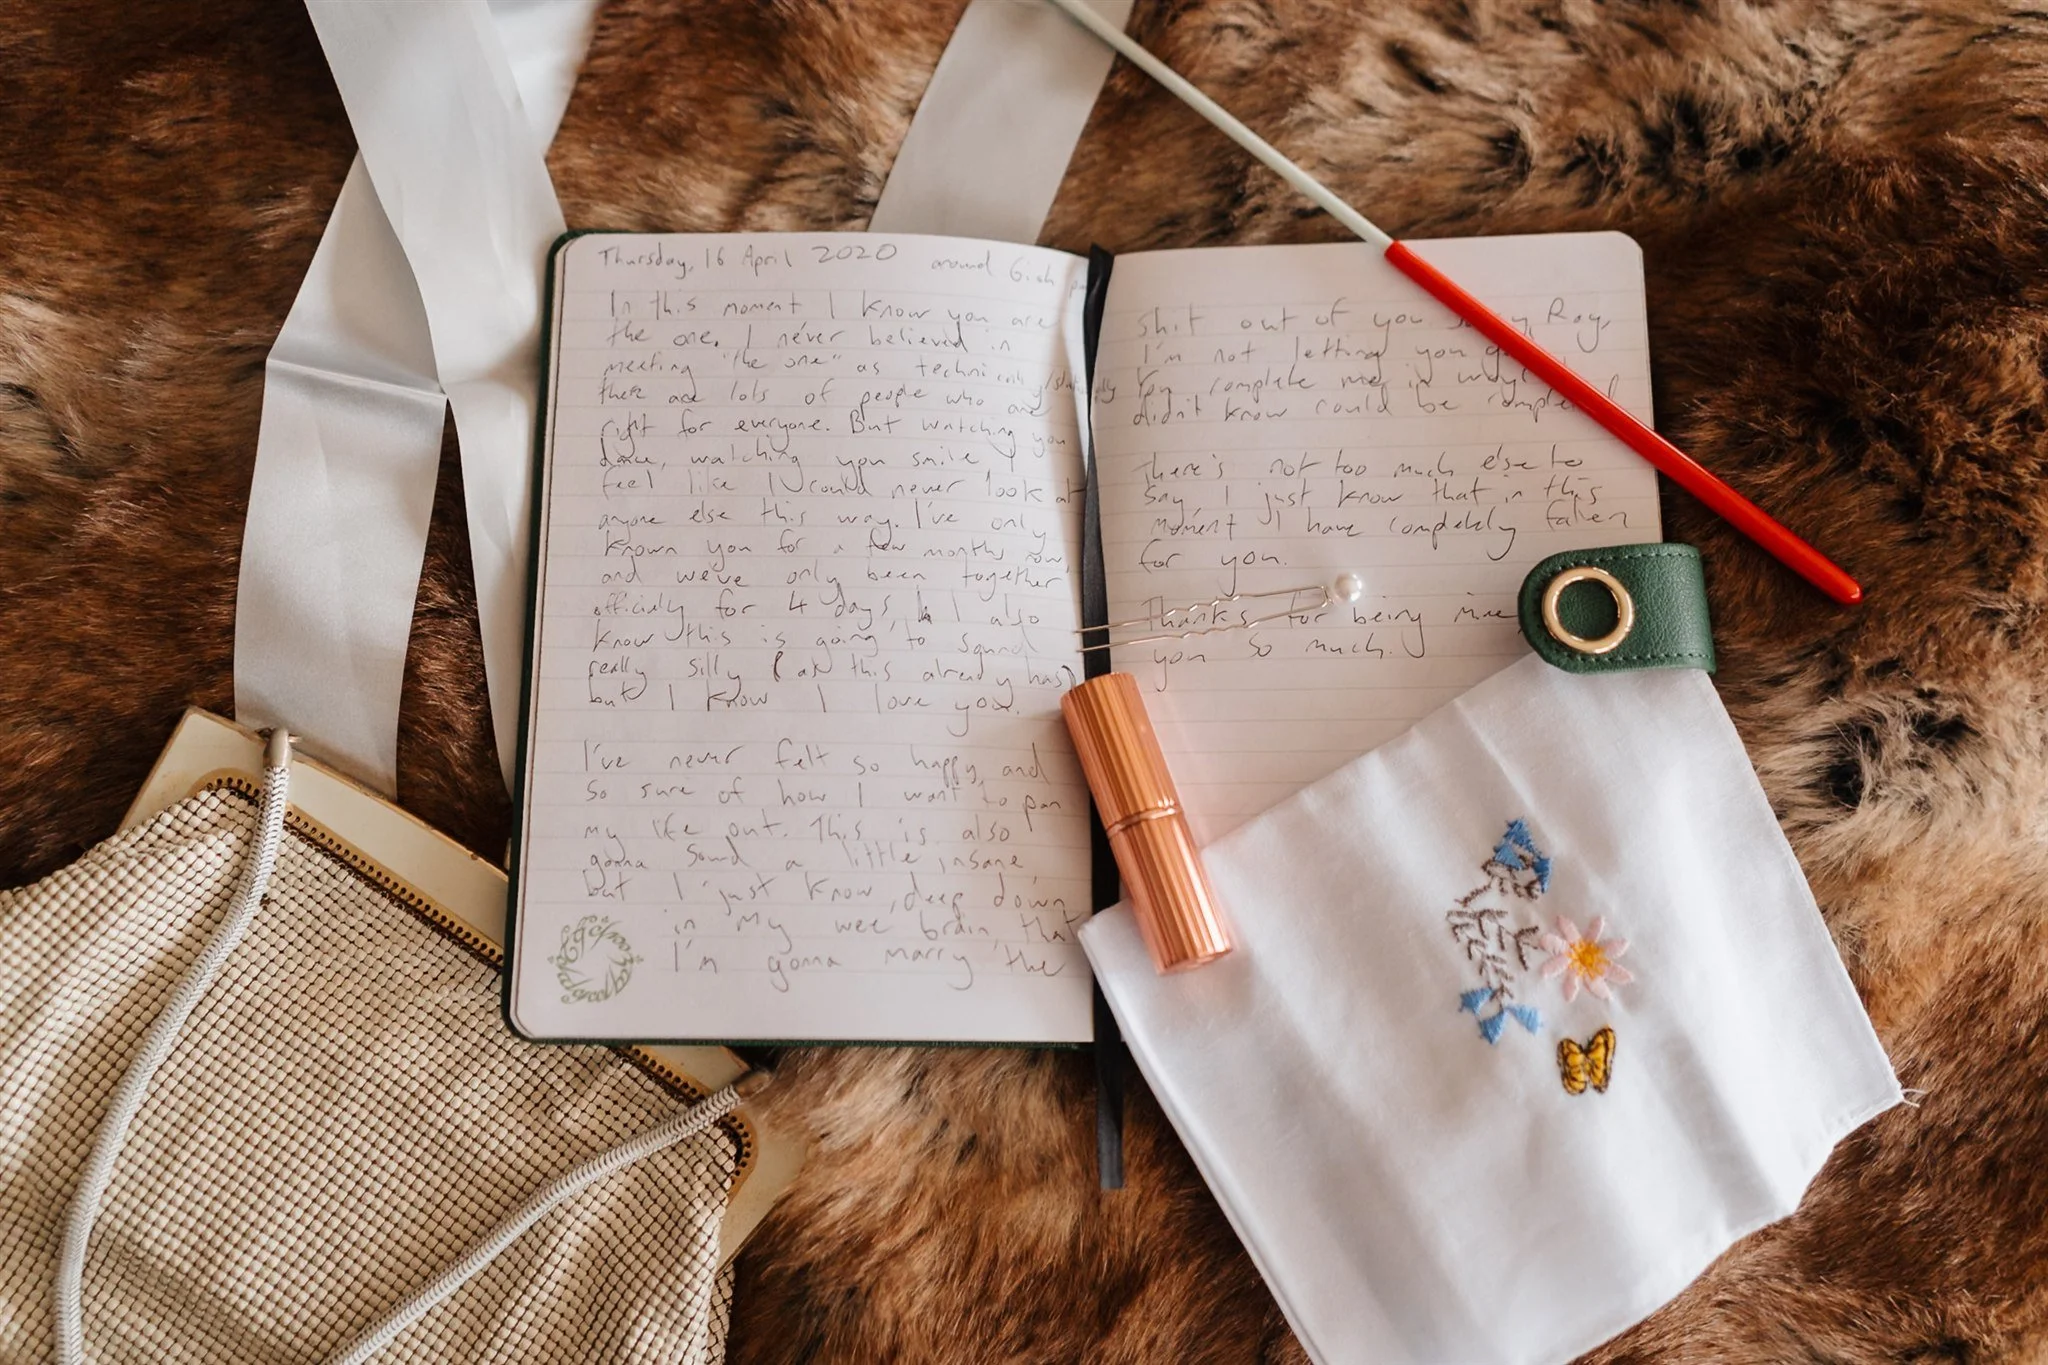 Thursday, 16 April 2020 around 6ish
In this moment I know you are
the one. I never believed in
meeting "the one" as technically/statistically
there are lots of people who are
right for everyone. But watching you
dance, watching you smile I
feel like I could never look at
anyone else this way. I've only
known you for a few months now,
and we've only been together
officially for 4 days, I also
know this is going to sound
really silly (as this already has)
but I know I love you.
I've never felt so happy and
so sure of how I want to pan
my life out. This is also
gonna sound a little insane,
but I just know, deep down
in my wee brain, that
I'm gonna marry the
shit out of you Roy,
I'm not letting you
You complete me in
didn't know could be
There's not too much else to
say, I just know that in this
moment I have completely fallen
for you.
Thanks for being mine
you so much.